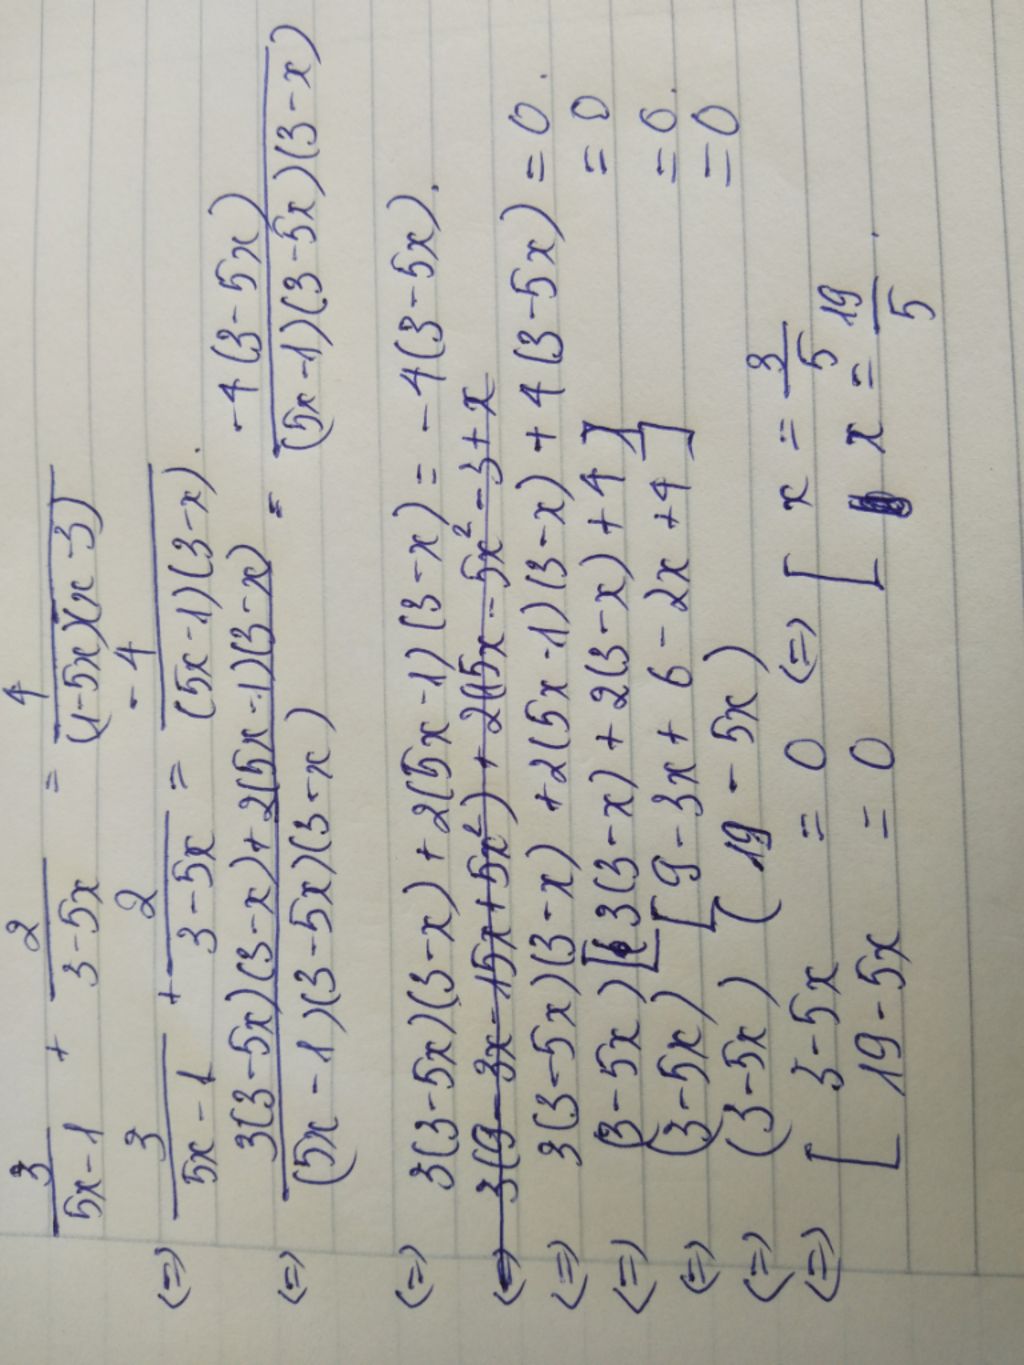 3/(5x-1) + 2/(3-5x) = 4/((1-5x)(x-3))
(=) 3/(5x-1) + 2/(3-5x) = -4/((5x-1)(3-x)).
(=) (3(3-5x)(3-x)+2(5x-1)(3-x))/((5x-1)(3-5x)(3-x)) = -4(3-5x)/((5x-1)(3-5x)(3-x))
(=) 3(3-5x)(3-x)+2(5x-1)(3-x) = -4(3-5x).
(=) 3(9-3x-15x+5x²)+2(15x-5x²-3+x
(=) 3(3-5x)(3-x)+2(5x-1)(3-x)+4(3-5x) = 0.
(=) (3-5x)[3(3-x)+2(3-x)+4] = 0
(=) (3-5x) [9-3x+6-2x+4] = 0.
(=) (3-5x) (19-5x) = 0
(=) [ 3-5x = 0 (=) [ x = 3/5
[ 19-5x = 0 [ x = 19/5.